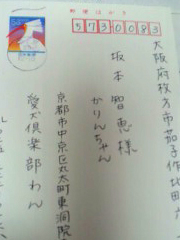 郵便はがき
5730083
大阪府枚方市茄子作北町
坂本智恵様
かりんちゃん
京都市中京区丸太町東洞院
愛犬倶楽部わん